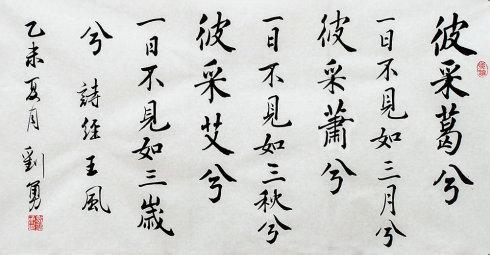 彼采葛兮
一日不見如三月兮
彼采蕭兮
一日不見如三秋兮
彼采艾兮
一日不見如三歲
兮 詩經王風
乙未夏月劉勇